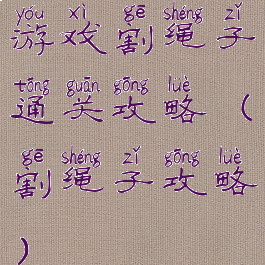 yóu xì gē shéng zǐ
游戏割绳子
tōng guān gōng lüè
通关攻略（
gē shéng zǐ gōng lüè
割绳子攻略
）